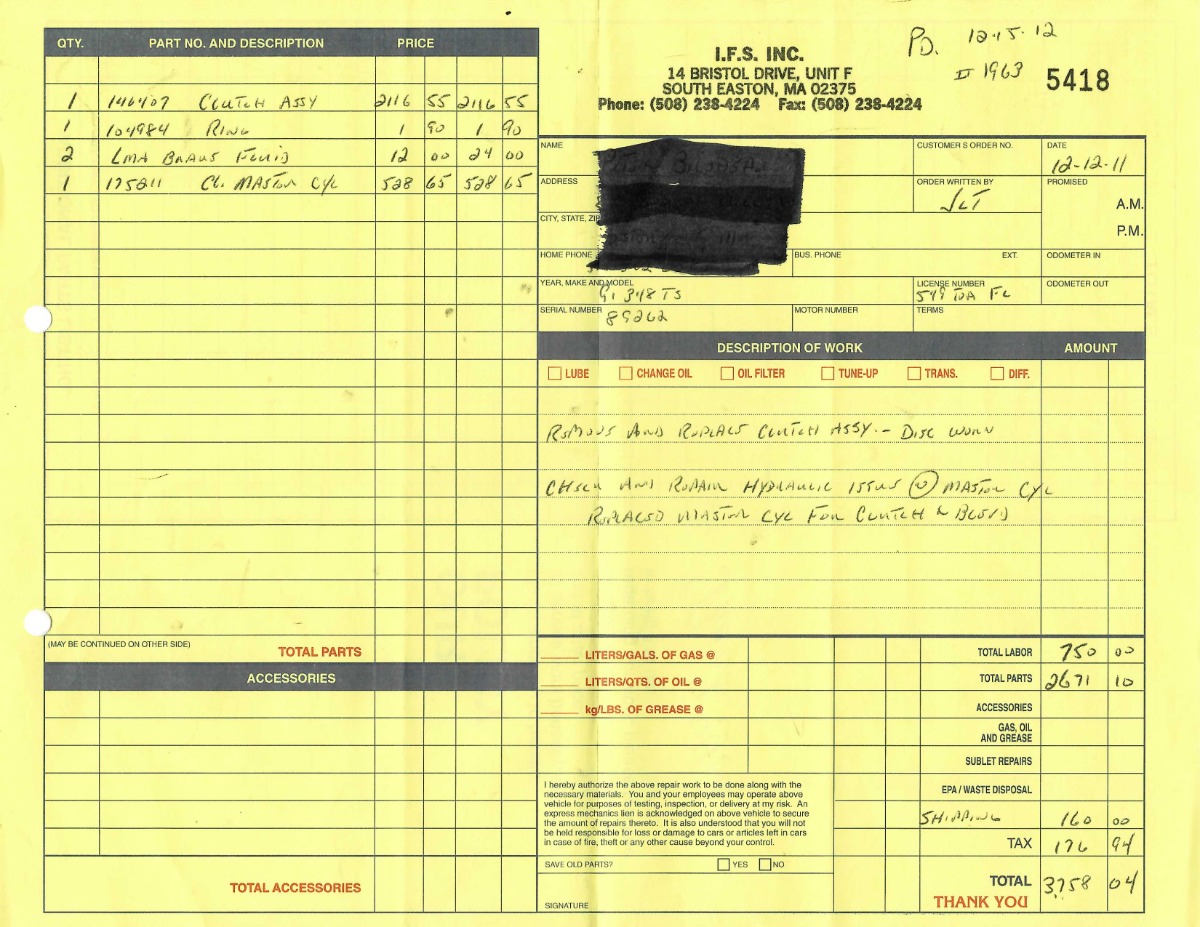 QTY. PART NO. AND DESCRIPTION PRICE
1 146407 CLUTCH ASSY 2116 55 2116 55
1 104984 RING 1 90 1 90
2 LMA BRAKE FLUID 12 00 24 00
1 175211 CL. MASTER CYL 528 65 528 65
(MAY BE CONTINUED ON OTHER SIDE) TOTAL PARTS
ACCESSORIES
TOTAL ACCESSORIES
PD. 12-15-12
1963
I.F.S. INC.
14 BRISTOL DRIVE, UNIT F
SOUTH EASTON, MA 02375
Phone: (508) 238-4224 Fax: (508) 238-4224
5418
NAME CUSTOMER'S ORDER NO. DATE
12-12-11
ADDRESS ORDER WRITTEN BY PROMISED
JLT A.M.
CITY, STATE, ZIP P.M.
HOME PHONE BUS. PHONE EXT. ODOMETER IN
YEAR, MAKE AND MODEL LICENSE NUMBER ODOMETER OUT
91 348 TS 549 TDA FL
SERIAL NUMBER MOTOR NUMBER TERMS
89262
DESCRIPTION OF WORK AMOUNT
LUBE CHANGE OIL OIL FILTER TUNE-UP TRANS. DIFF.
REMOVE AND REPLACE CLUTCH ASSY. - DISC WORN
CHECK AND REPAIR HYDRAULIC ISSUE MASTER CYL
REPLACED MASTER CYL FOR CLUTCH & BLEED
LITERS/GALS. OF GAS @ TOTAL LABOR 750 00
LITERS/QTS. OF OIL @ TOTAL PARTS 2671 10
kg/LBS. OF GREASE @ ACCESSORIES
GAS, OIL AND GREASE
SUBLET REPAIRS
EPA / WASTE DISPOSAL
SHIPPING 160 00
TAX 176 94
TOTAL 3758 04
THANK YOU
I hereby authorize the above repair work to be done along with the
necessary materials. You and your employees may operate above
vehicle for purposes of testing, inspection, or delivery at my risk. An
express mechanics lien is acknowledged on above vehicle to secure
the amount of repairs thereto. It is also understood that you will not
be held responsible for loss or damage to cars or articles left in cars
in case of fire, theft or any other cause beyond your control.
SAVE OLD PARTS? YES NO
SIGNATURE